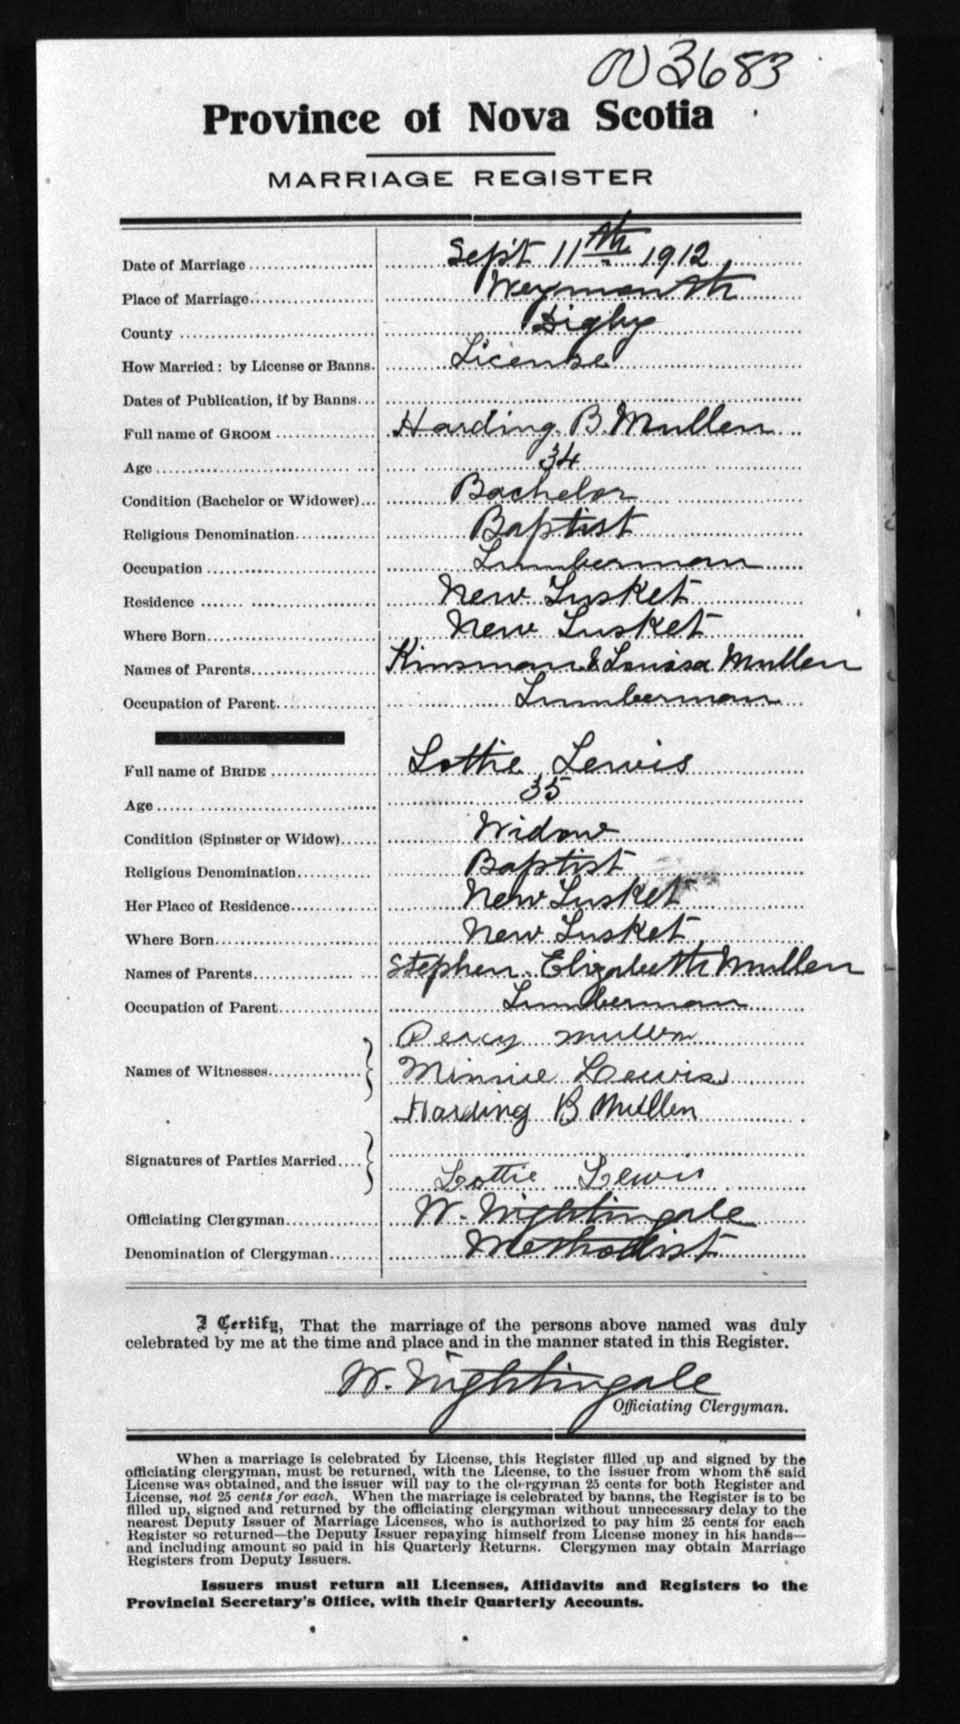 N 3683
Province of Nova Scotia
MARRIAGE REGISTER
Date of Marriage Sept 11th 1912
Place of Marriage Weymouth
County Digby
How Married: by License or Banns. License
Dates of Publication, if by Banns
Full name of GROOM Harding B. Mullen
Age 34
Condition (Bachelor or Widower) Bachelor
Religious Denomination Baptist
Occupation Lumberman
Residence New Tusket
Where Born New Tusket
Names of Parents Kinsman & Louisa Mullen
Occupation of Parent Lumberman
Full name of BRIDE Lottie Lewis
Age 35
Condition (Spinster or Widow) Widow
Religious Denomination Baptist
Her Place of Residence New Tusket
Where Born New Tusket
Names of Parents Stephen Elizabeth Mullen
Occupation of Parent Lumberman
Percy Mullen
Names of Witnesses Minnie Lewis
Harding B Mullen
Signatures of Parties Married
Lottie Lewis
Officiating Clergyman W. Nightingale
Denomination of Clergyman Methodist
I Certify, That the marriage of the persons above named was duly
celebrated by me at the time and place and in the manner stated in this Register.
W. Nightingale
Officiating Clergyman.
When a marriage is celebrated by License, this Register filled up and signed by the
officiating clergyman, must be returned, with the License, to the issuer from whom the said
License was obtained, and the issuer will pay to the clergyman 25 cents for both Register and
License, not 25 cents for each. When the marriage is celebrated by banns, the Register is to be
filled up, signed and returned by the officiating clergyman without unnecessary delay to the
nearest Deputy Issuer of Marriage Licenses, who is authorized to pay him 25 cents for each
Register so returned—the Deputy Issuer repaying himself from License money in his hands—
and including amount so paid in his Quarterly Returns. Clergymen may obtain Marriage
Registers from Deputy Issuers.
Issuers must return all Licenses, Affidavits and Registers to the
Provincial Secretary's Office, with their Quarterly Accounts.